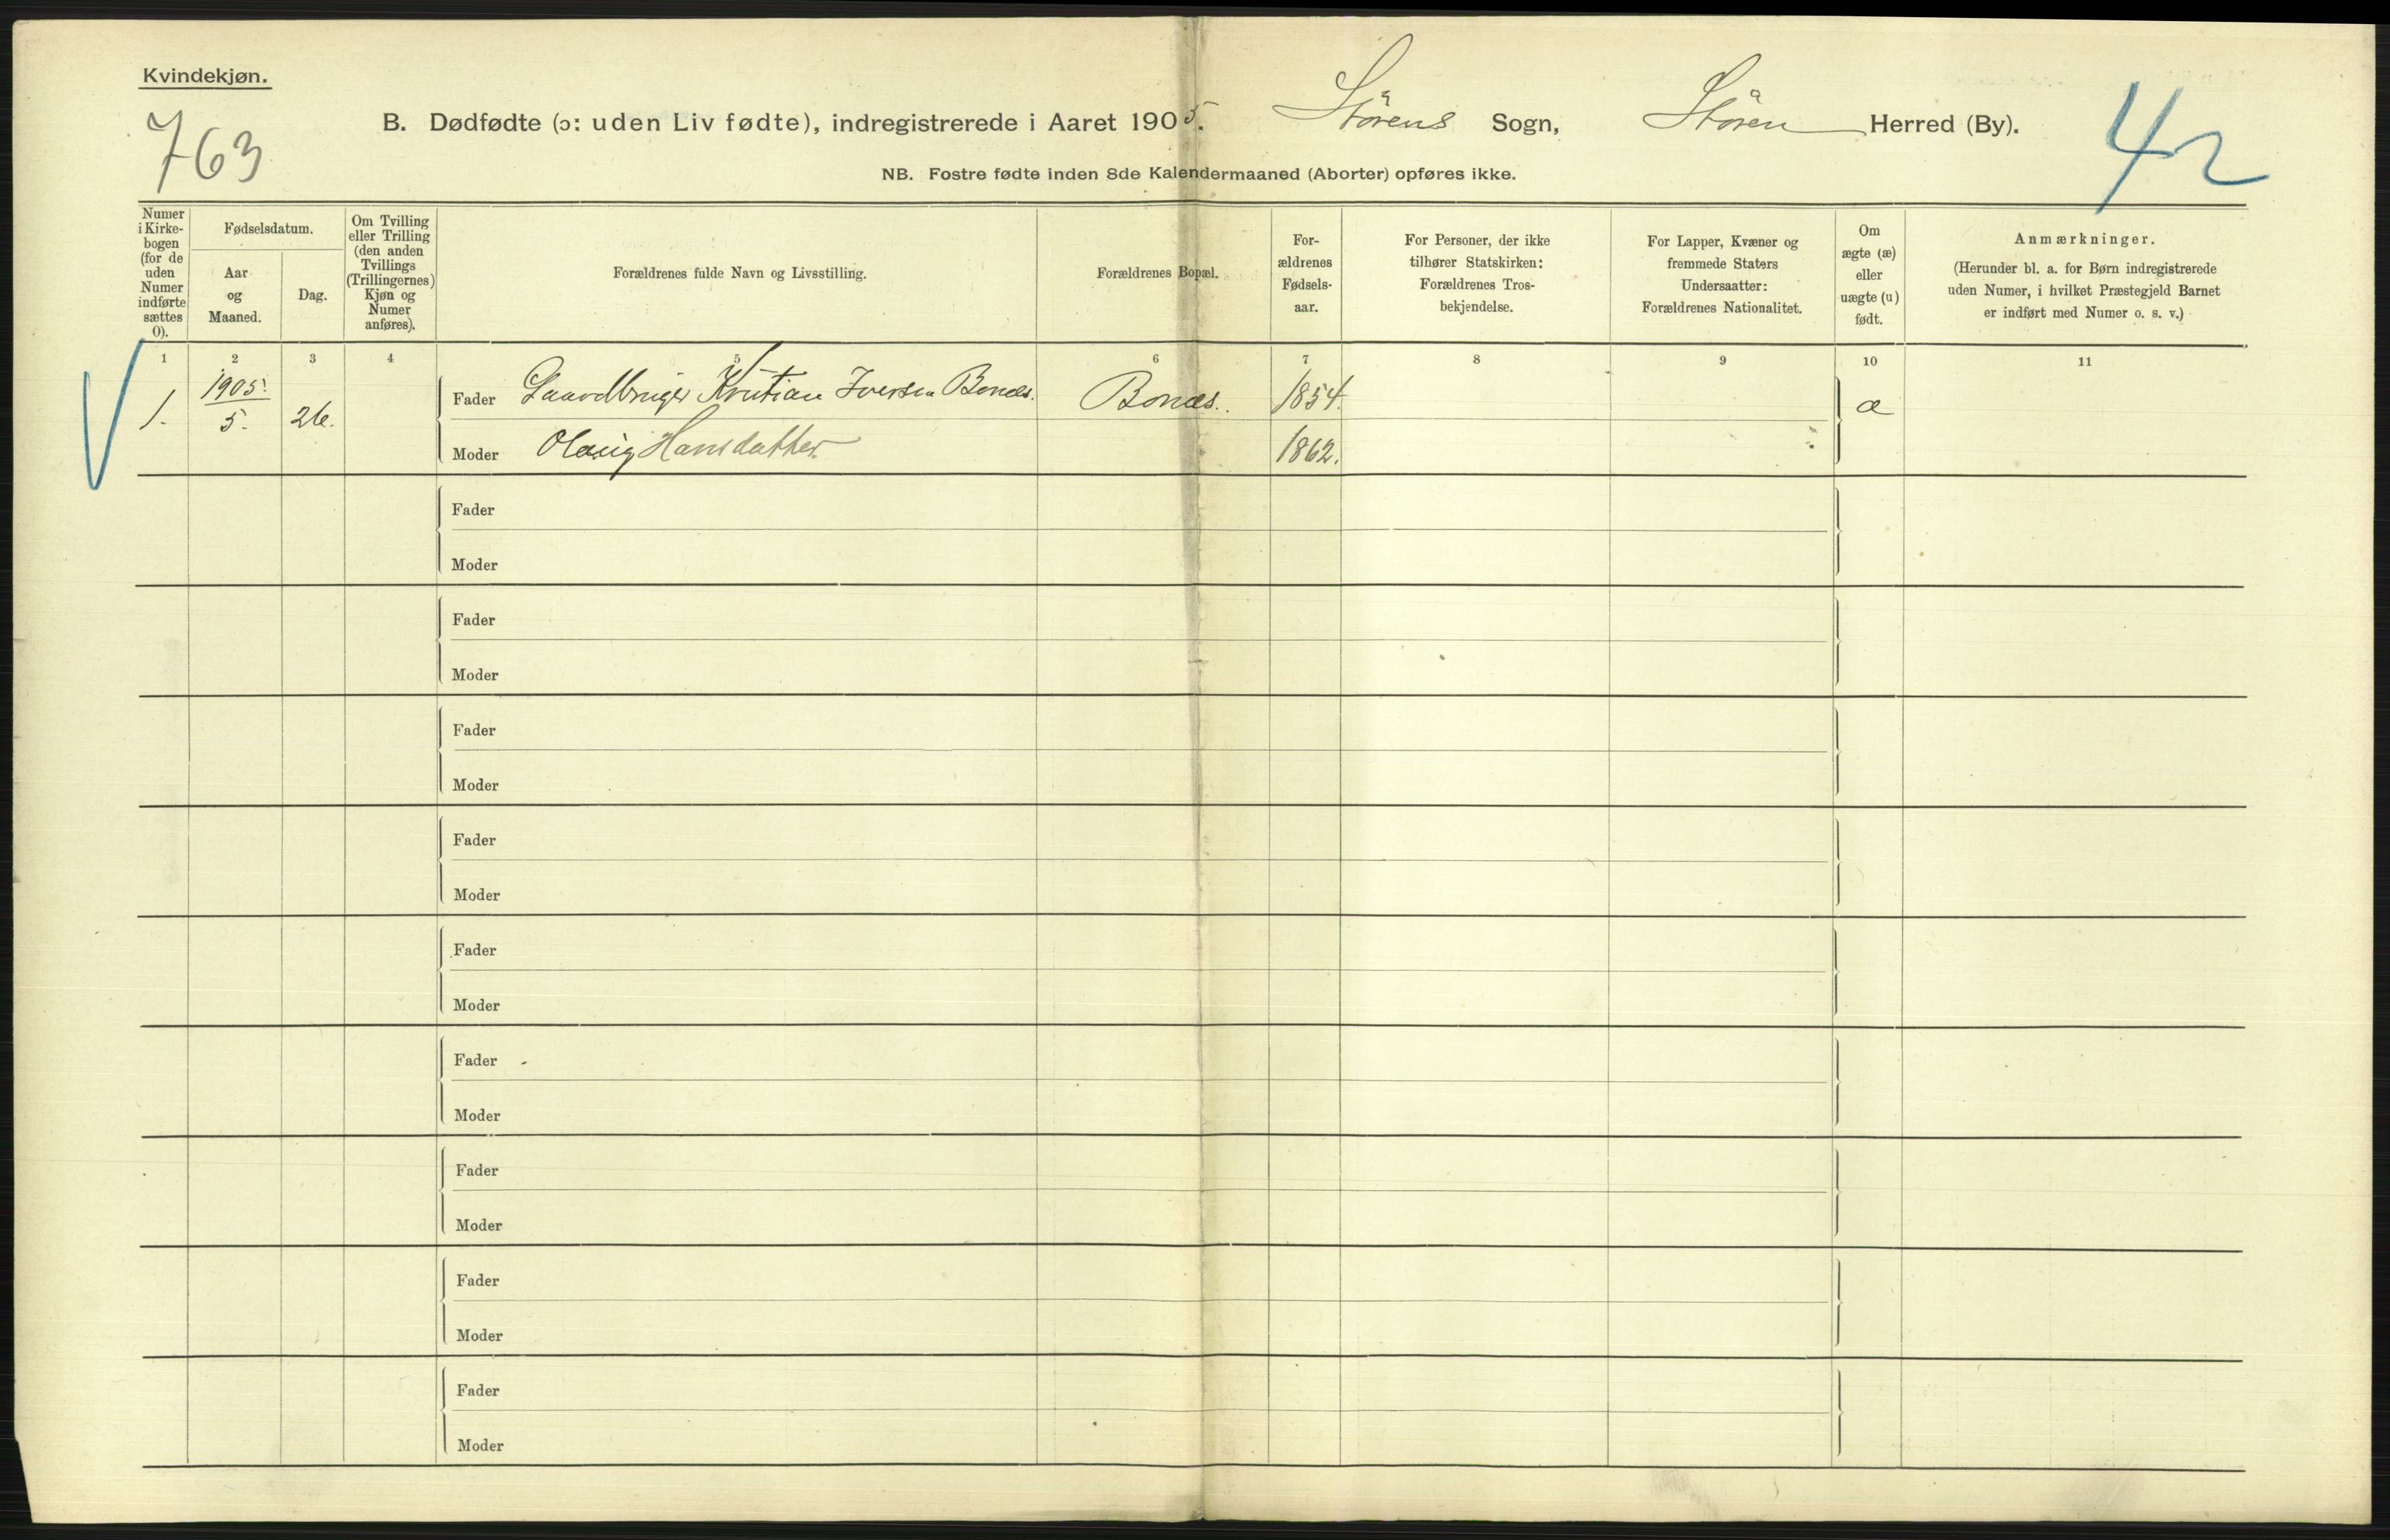 Kvindekjøn.
763
B. Dødfødte (ɔ: uden Liv fødte), indregistrerede i Aaret 1905. Størens Sogn, Støren Herred (By).
42
NB. Fostre fødte inden 8de Kalendermaaned (Aborter) opføres ikke.
Numer
i Kirke-
bogen
(for de
uden
Numer
indførte
sættes
0).
Fødselsdatum.
Aar
og
Maaned.
Dag.
Om Tvilling
eller Trilling
(den anden
Tvillings
(Trillingernes)
Kjøn og
Numer
anføres).
Forældrenes fulde Navn og Livsstilling.
Forældrenes Bopæl.
For-
ældrenes
Fødsels-
aar.
For Personer, der ikke
tilhører Statskirken:
Forældrenes Tros-
bekjendelse.
For Lapper, Kvæner og
fremmede Staters
Undersaatter:
Forældrenes Nationalitet.
Om
ægte (æ)
eller
uægte (u)
født.
Anmærkninger.
(Herunder bl. a. for Børn indregistrerede
uden Numer, i hvilket Præstegjeld Barnet
er indført med Numer o. s. v.)
1 2 3 4 5 6 7 8 9 10 11
1. 1905. 5. 26. Fader Gaardbruger Kristian Iversen Bones. Bones. 1854. æ
Moder Olasig Hansdatter. 1862.
Fader
Moder
Fader
Moder
Fader
Moder
Fader
Moder
Fader
Moder
Fader
Moder
Fader
Moder
Fader
Moder
Fader
Moder